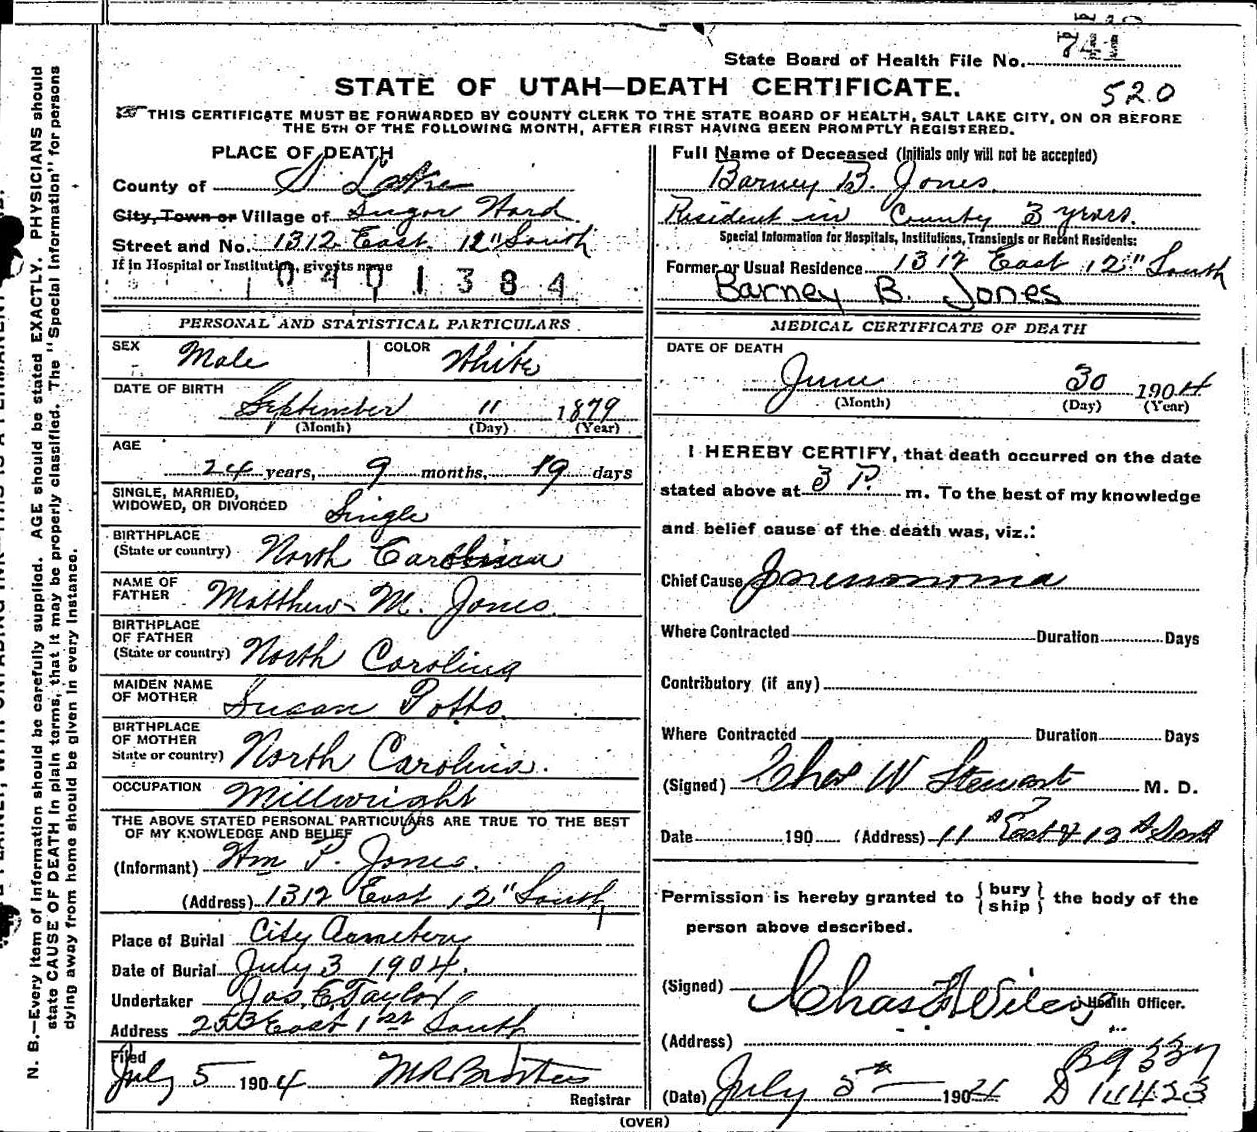 741
State Board of Health File No.
STATE OF UTAH—DEATH CERTIFICATE.
520
THIS CERTIFICATE MUST BE FORWARDED BY COUNTY CLERK TO THE STATE BOARD OF HEALTH, SALT LAKE CITY, ON OR BEFORE
THE 5TH OF THE FOLLOWING MONTH, AFTER FIRST HAVING BEEN PROMPTLY REGISTERED.
PLACE OF DEATH
County of S Lake
City, Town or Village of Sugar Ward
Street and No. 1312 East 12" South
If in Hospital or Institution, give its name
0401384
PERSONAL AND STATISTICAL PARTICULARS
SEX Male COLOR White
DATE OF BIRTH
September 11 1879
(Month) (Day) (Year)
AGE
24 years, 9 months, 19 days
SINGLE, MARRIED,
WIDOWED, OR DIVORCED Single
BIRTHPLACE
(State or country) North Carolina
NAME OF
FATHER Matthew M. Jones
BIRTHPLACE
OF FATHER
(State or country) North Carolina
MAIDEN NAME
OF MOTHER Susan Potts
BIRTHPLACE
OF MOTHER
State or country) North Carolina.
OCCUPATION Millwright
THE ABOVE STATED PERSONAL PARTICULARS ARE TRUE TO THE BEST
OF MY KNOWLEDGE AND BELIEF
(Informant) Wm P. Jones.
(Address) 1312 East 12" South
Place of Burial City Cemetery
Date of Burial July 3 1904.
Undertaker Jos. E Taylor
Address East 1st South
Filed
July 5 1904
Registrar
Full Name of Deceased (Initials only will not be accepted)
Barney B. Jones.
Resident in County 3 years.
Special Information for Hospitals, Institutions, Transients or Recent Residents:
Former or Usual Residence 1312 East 12" South
Barney B. Jones
MEDICAL CERTIFICATE OF DEATH
DATE OF DEATH
June 30 1904
(Month) (Day) (Year)
I HEREBY CERTIFY, that death occurred on the date
stated above at 3 P. m. To the best of my knowledge
and belief cause of the death was, viz.:
Chief Cause Pneumonia
Where Contracted Duration Days
Contributory (if any)
Where Contracted Duration Days
(Signed) Chas W Stewart M. D.
Date 190 (Address) 11th East & 12th South
Permission is hereby granted to { bury ship } the body of the
person above described.
(Signed) Chas Wilcox Health Officer.
(Address)
B 9337
(Date) July 5th 1904 D 14423
(OVER)
N. B.—Every item of information should be carefully supplied. AGE should be stated EXACTLY. PHYSICIANS should
state CAUSE OF DEATH in plain terms, that it may be properly classified. The "Special Information" for persons
dying away from home should be given in every instance.